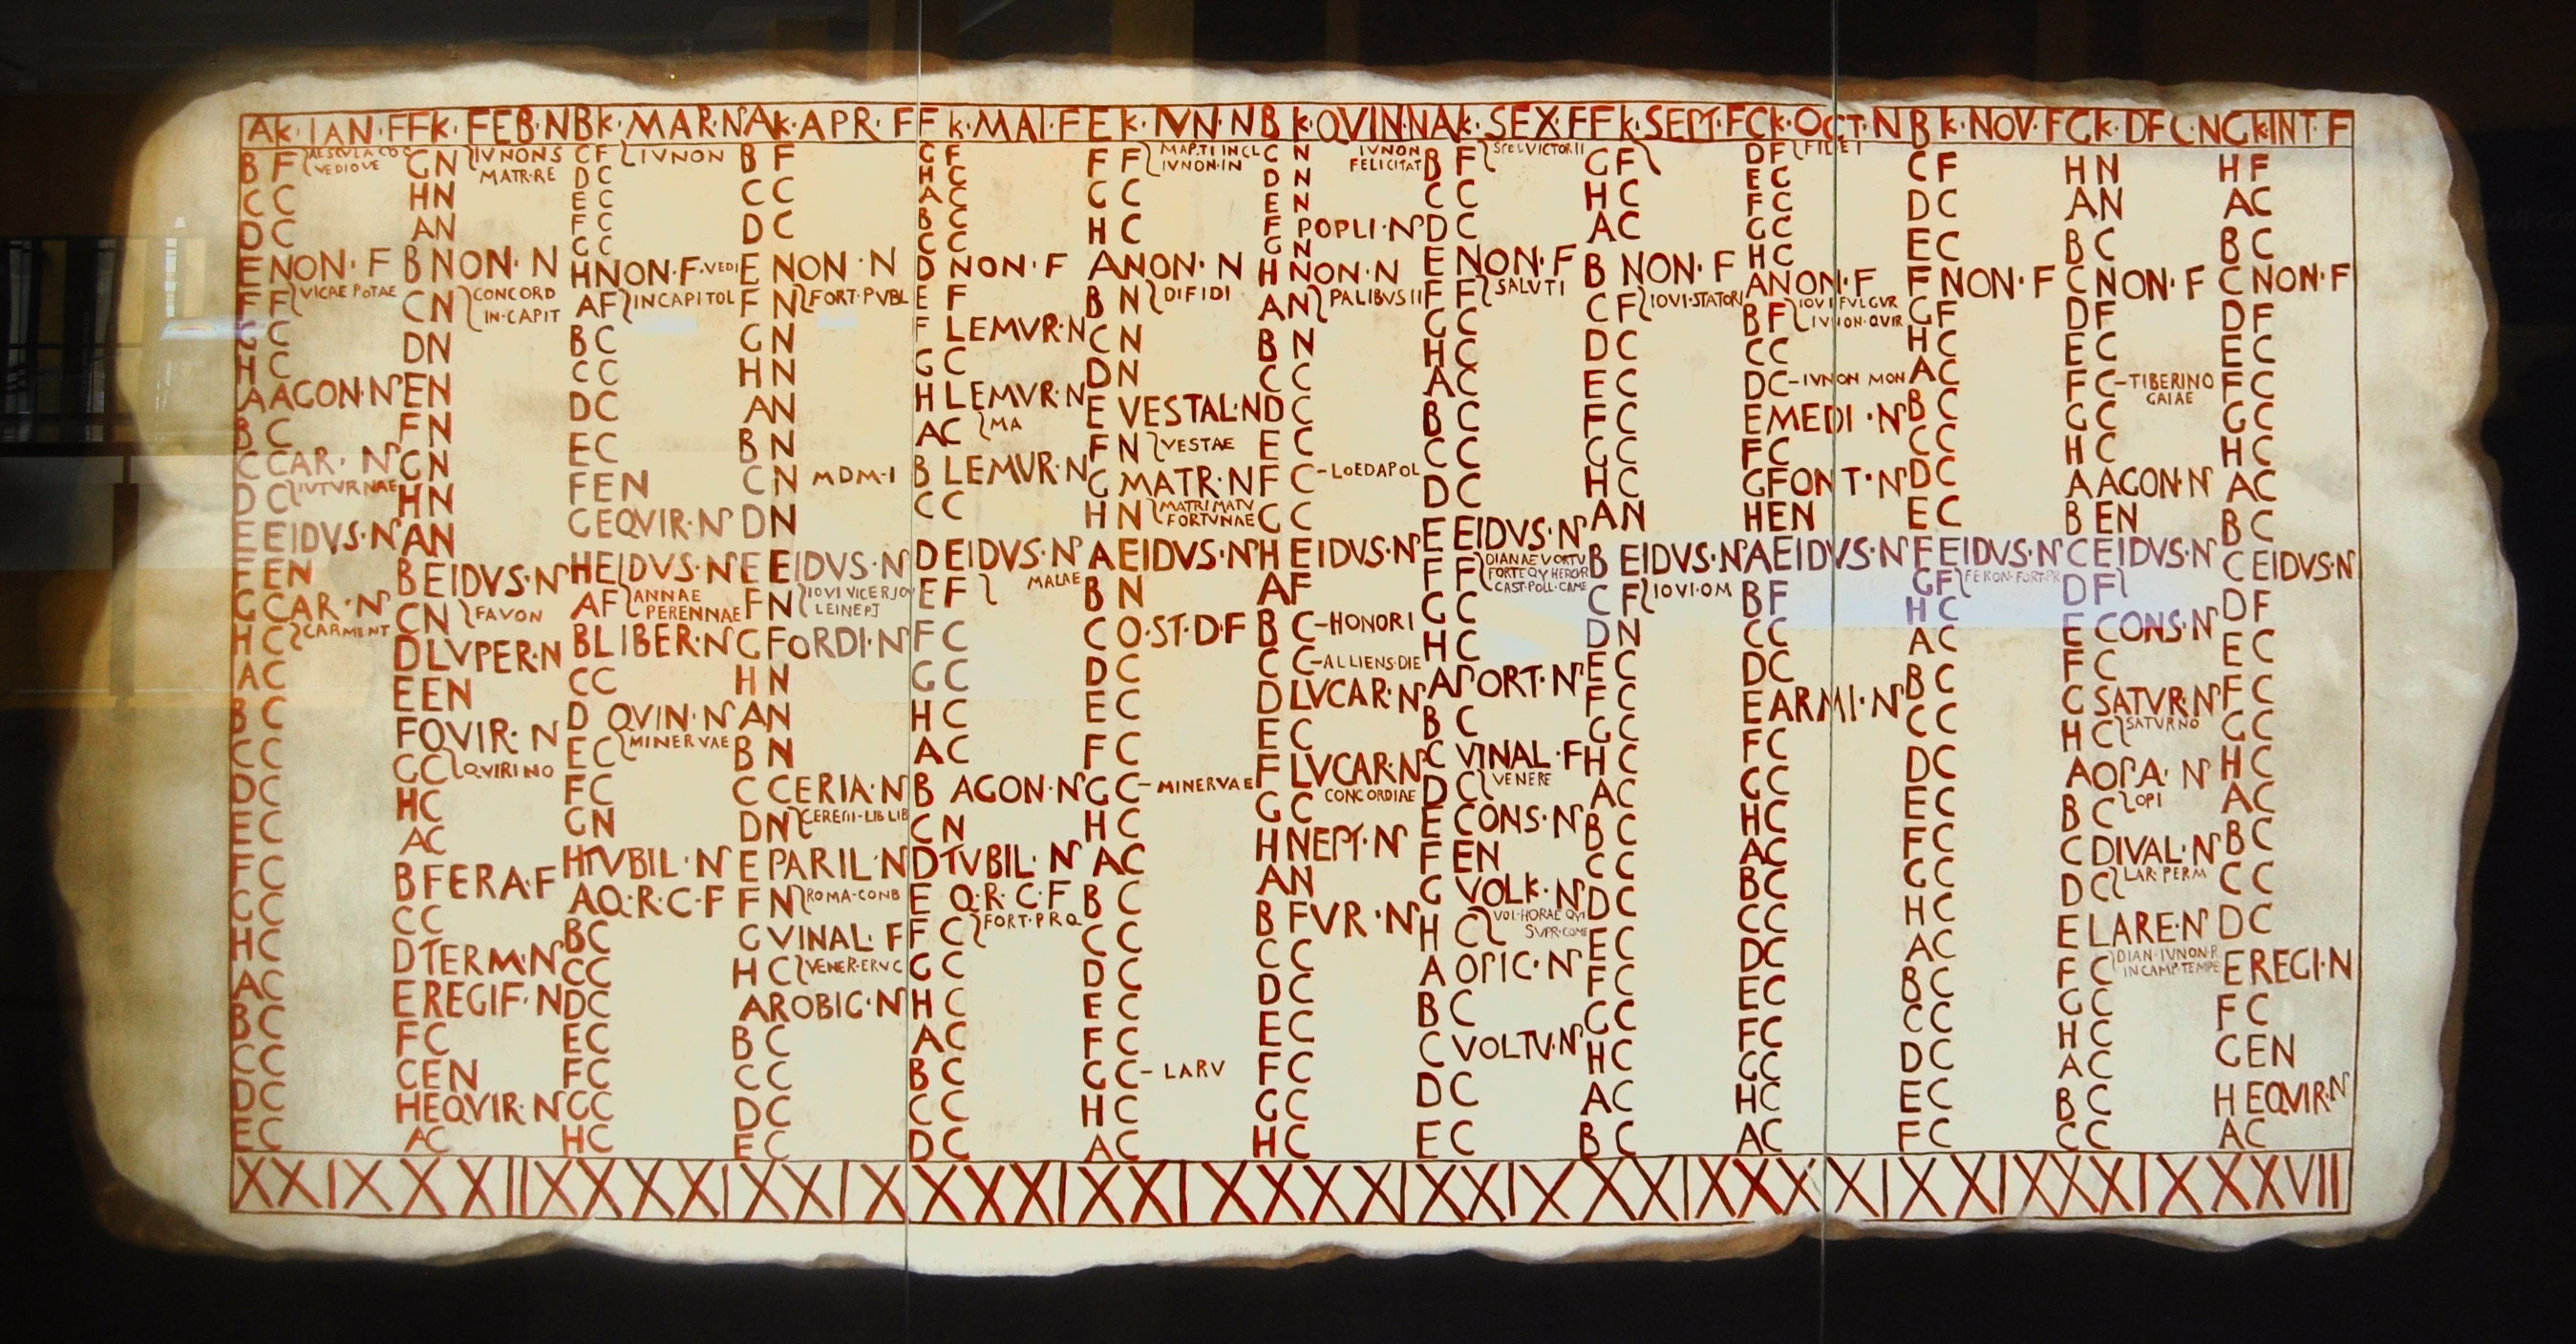 AK·IAN·F FK·FEB·N BK·MAR·N AK·APR·F FK·MAI·F EK·IVN·N BK·QVIN·N AK·SEX·F FK·SEPT·F CK·OCT·N BK·NOV·F GK·DEC·N GK·INT·F
B F
VEDIOVE
C C
D C
E NON·F
F F VICAE POTAE
G C
H C
A AGON·N
B C
C CAR·N
D C IVTVRNAE
E EIDVS·N
F EN
G CAR·N
H C CARMENT
A C
B C
C C
D C
E C
F C
G C
H C
A C
B C
C C
D C
E C
G N IVNONS
MATR·RE
H N
A N
B NON·N
C N CONCORD
IN·CAPIT
D N
E N
F N
G N
H N
A N
B EIDVS·N
C N FAVON
D LVPER·N
E EN
F QVIR·N
G C QVIRINO
H C
A C
B FERA·F
C C
D TERM·N
E REGIF·N
F C
G EN
H EQVIR·N
A C
C F IVNON
D C
E C
F C
G C
H NON·F·VEDI
A F IN CAPITOL
B C
C C
D C
E C
F EN
G EQVIR·N
H EIDVS·N
A F ANNAE
PERENNAE
B LIBER·N
C C
D QVIN·N
E C MINERVAE
F C
G N
H TVBIL·N
A Q·R·C·F
B C
C C
D C
E C
F C
G C
H C
B F
C C
D C
E NON·N
F N FORT·PVBL
G N
H N
A N
B N
C N MDM·I
D N
E EIDVS·N
F N IOVI VICERIOV
LEINEPI
G FORDI·N
H N
A N
B N
C CERIA·N
D N CERERII-LIB LIB
E PARIL·N
F N ROMA-CONB
G VINAL·F
H C VENER·ERVC
A ROBIG·N
B C
C C
D C
E C
G F
H C
A C
B C
C C
D NON·F
E F
F LEMVR·N
G C
H LEMVR·N
A C MA
B LEMVR·N
C C
D EIDVS·N
E F MALAE
F C
G C
H C
A C
B AGON·N
C N
D TVBIL·N
E Q·R·C·F
F C FORT·PRQ
G C
H C
A C
B C
C C
D C
F F MAR·TI INCL
IVNON·IN
G C
H C
A NON·N
B N DIFIDI
C N
D N
E VESTAL·N
F N VESTAE
G MATR·N
H N MATRI MATV
FORTVNAE
A EIDVS·N
B N
C Q·ST·D·F
D C
E C
F C
G C-MINERVAE
H C
A C
B C
C C
D C
E C
F C
G C-LARV
H C
A C
C N IVNON
FELICITAT
D N
E N
F POPLI·N
G N
H NON·N
A N PALIBVS II
B N
C C
D C
E C
F C-LOEDAPOL
G C
H EIDVS·N
A F
B C-HONORI
C C-ALLIENS·DIE
D LVCAR·N
E C
F LVCAR·N
G C CONCORDIAE
H NEPT·N
A N
B FVR·N
C C
D C
E C
F C
G C
H C
B F SPEI VICTOR II
C C
D C
E NON·F
F F SALVTI
G C
H C
A C
B C
C C
D C
E EIDVS·N
F F DIANAE VORTV
FORTEQV HEROR
CAST·POLL·CAME
G C
H C
A PORT·N
B C
C VINAL·F
D C VENERE
E CONS·N
F EN
G VOLK·N
H C VOL·HORAE QVI
SVPR·COME
A OPIC·N
B C
C VOLTV·N
D C
E C
G F
H C
A C
B NON·F
C F IOVI·STATORI
D C
E C
F C
G C
H C
A N
B EIDVS·N
C F IOVI·OM
D N
E C
F C
G C
H C
A C
B C
C C
D C
E C
F C
G C
H C
A C
B C
D F FIDEI
E C
F C
G C
H C
A NON·F
B F IOVI FVLGVR
IVNON·QVIR
C C
D C-IVNON MON
E MEDI·N
F C
G FONT·N
H EN
A EIDVS·N
B F
C C
D C
E ARMI·N
F C
G C
H C
A C
B C
C C
D C
E C
F C
G C
H C
A C
C F
D C
E C
F NON·F
G F
H C
A C
B C
C C
D C
E C
F EIDVS·N
G F FERON·FORT·PR
H C
A C
B C
C C
D C
E C
F C
G C
H C
A C
B C
C C
D C
E C
F C
H N
A N
B C
C NON·F
D F
E C
F C-TIBERINO
GAIAE
G C
H C
A AGON·N
B EN
C EIDVS·N
D F
E CONS·N
F C
G SATVR·N
H C SATVRNO
A OPA·N
B C OPI
C DIVAL·N
D C LAR·PERM
E LARE·N
F C DIAN·IVNON·R
IN CAMP·TEMPE
G C
H C
A C
B C
C C
H F
A C
B C
C NON·F
D F
E C
F C
G C
H C
A C
B C
C EIDVS·N
D F
E C
F C
G C
H C
A C
B C
C C
D C
E REGI·N
F C
G EN
H EQVIR·N
A C
XXIX XXIIX XXXI XXIX XXXI XXIX XXXI XXIX XXIX XXXI XXIX XXIX XXVII